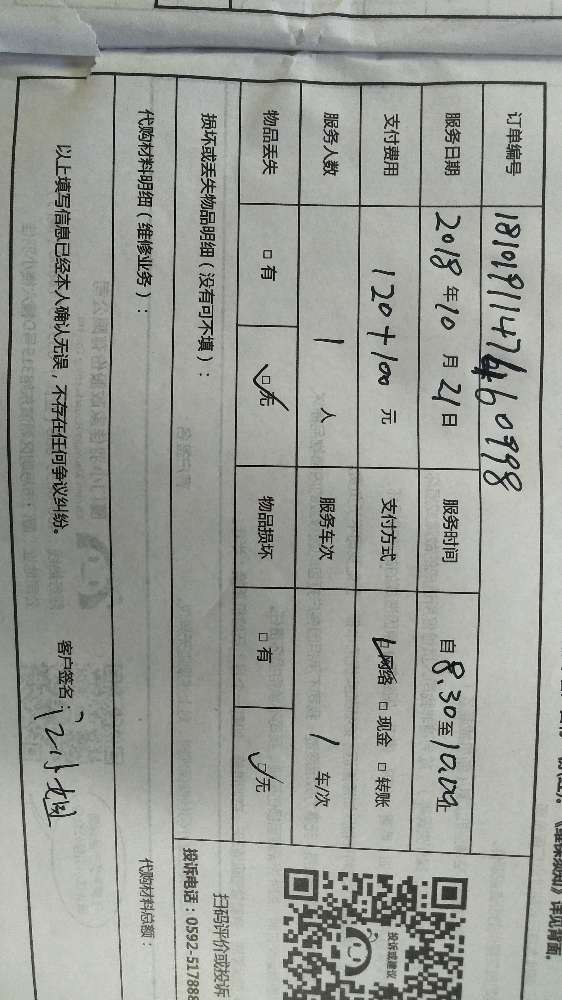 订单编号
服务日期 2018年10月21日 服务时间 自8.30至10.00止
支付费用 120+100元 支付方式 □网络 □现金 □转账
服务人数 1人 服务车次 1车/次
物品丢失 □有 □无 物品损坏 □有 □无
损坏或丢失物品明细(没有可不填):
代购材料明细(维修业务): 代购材料总额:
以上填写信息已经本人确认无误,不存在任何争议纠纷。 客户签名:江小姐
投诉或建议
扫码评价或投诉
投诉电话:0592-517888
《维保须知》详见背面。